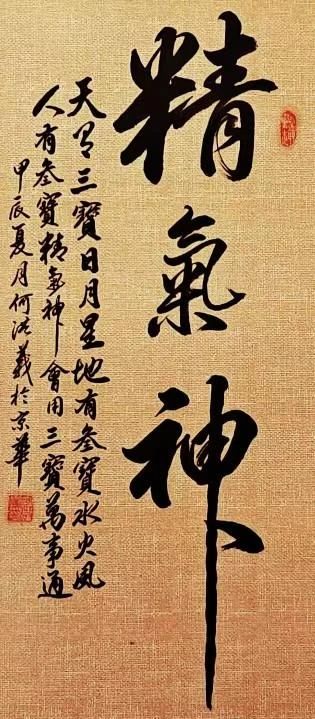 精氣神
天有三寶日月星地有叁寶水火風
人有叁寶精氣神會用三寶萬事通
甲辰夏月何洪義於京華